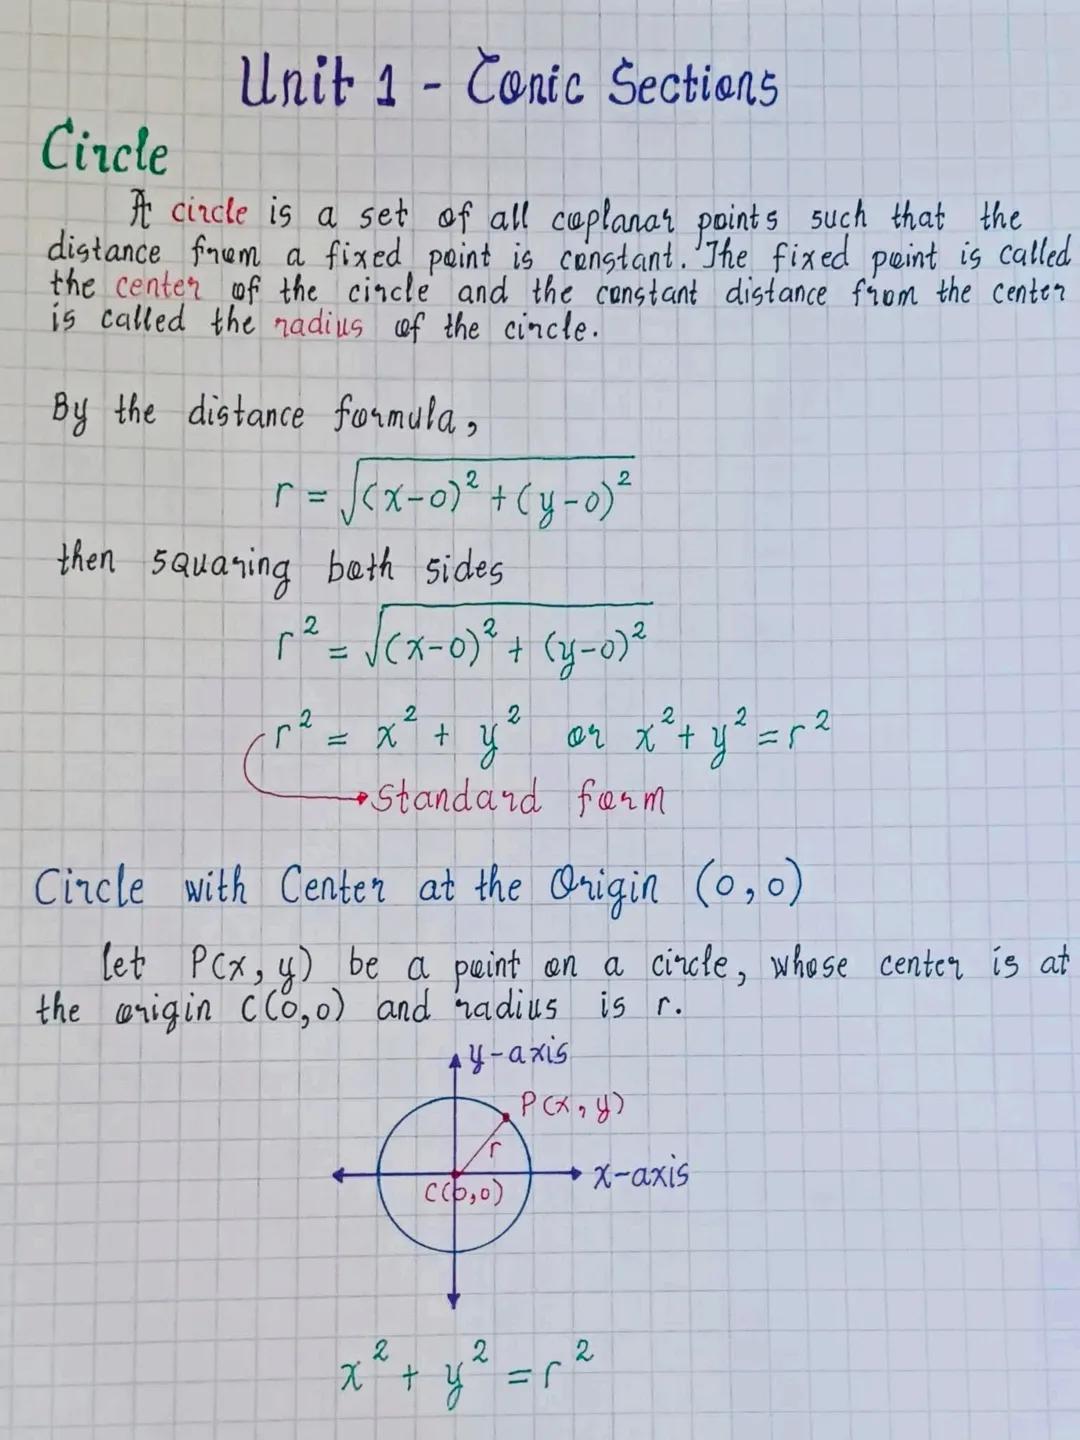 Unit 1 - Conic Sections
Circle
A circle is a set of all coplanar points such that the
distance from a fixed point is constant. The fixed point is called
the center of the circle and the constant distance from the center
is called the radius of the circle.
By the distance formula,
r = √(x-0)² + (y-0)²
then squaring both sides
r² = √(x-0)² + (y-0)²
r² = x² + y² or x² + y² = r²
Standard form
Circle with Center at the Origin (0,0)
let P(x, y) be a point on a circle, whose center is at
the origin C(0,0) and radius is r.
y-axis
P(x, y)
r
x-axis
C(0,0)
x² + y² = r²